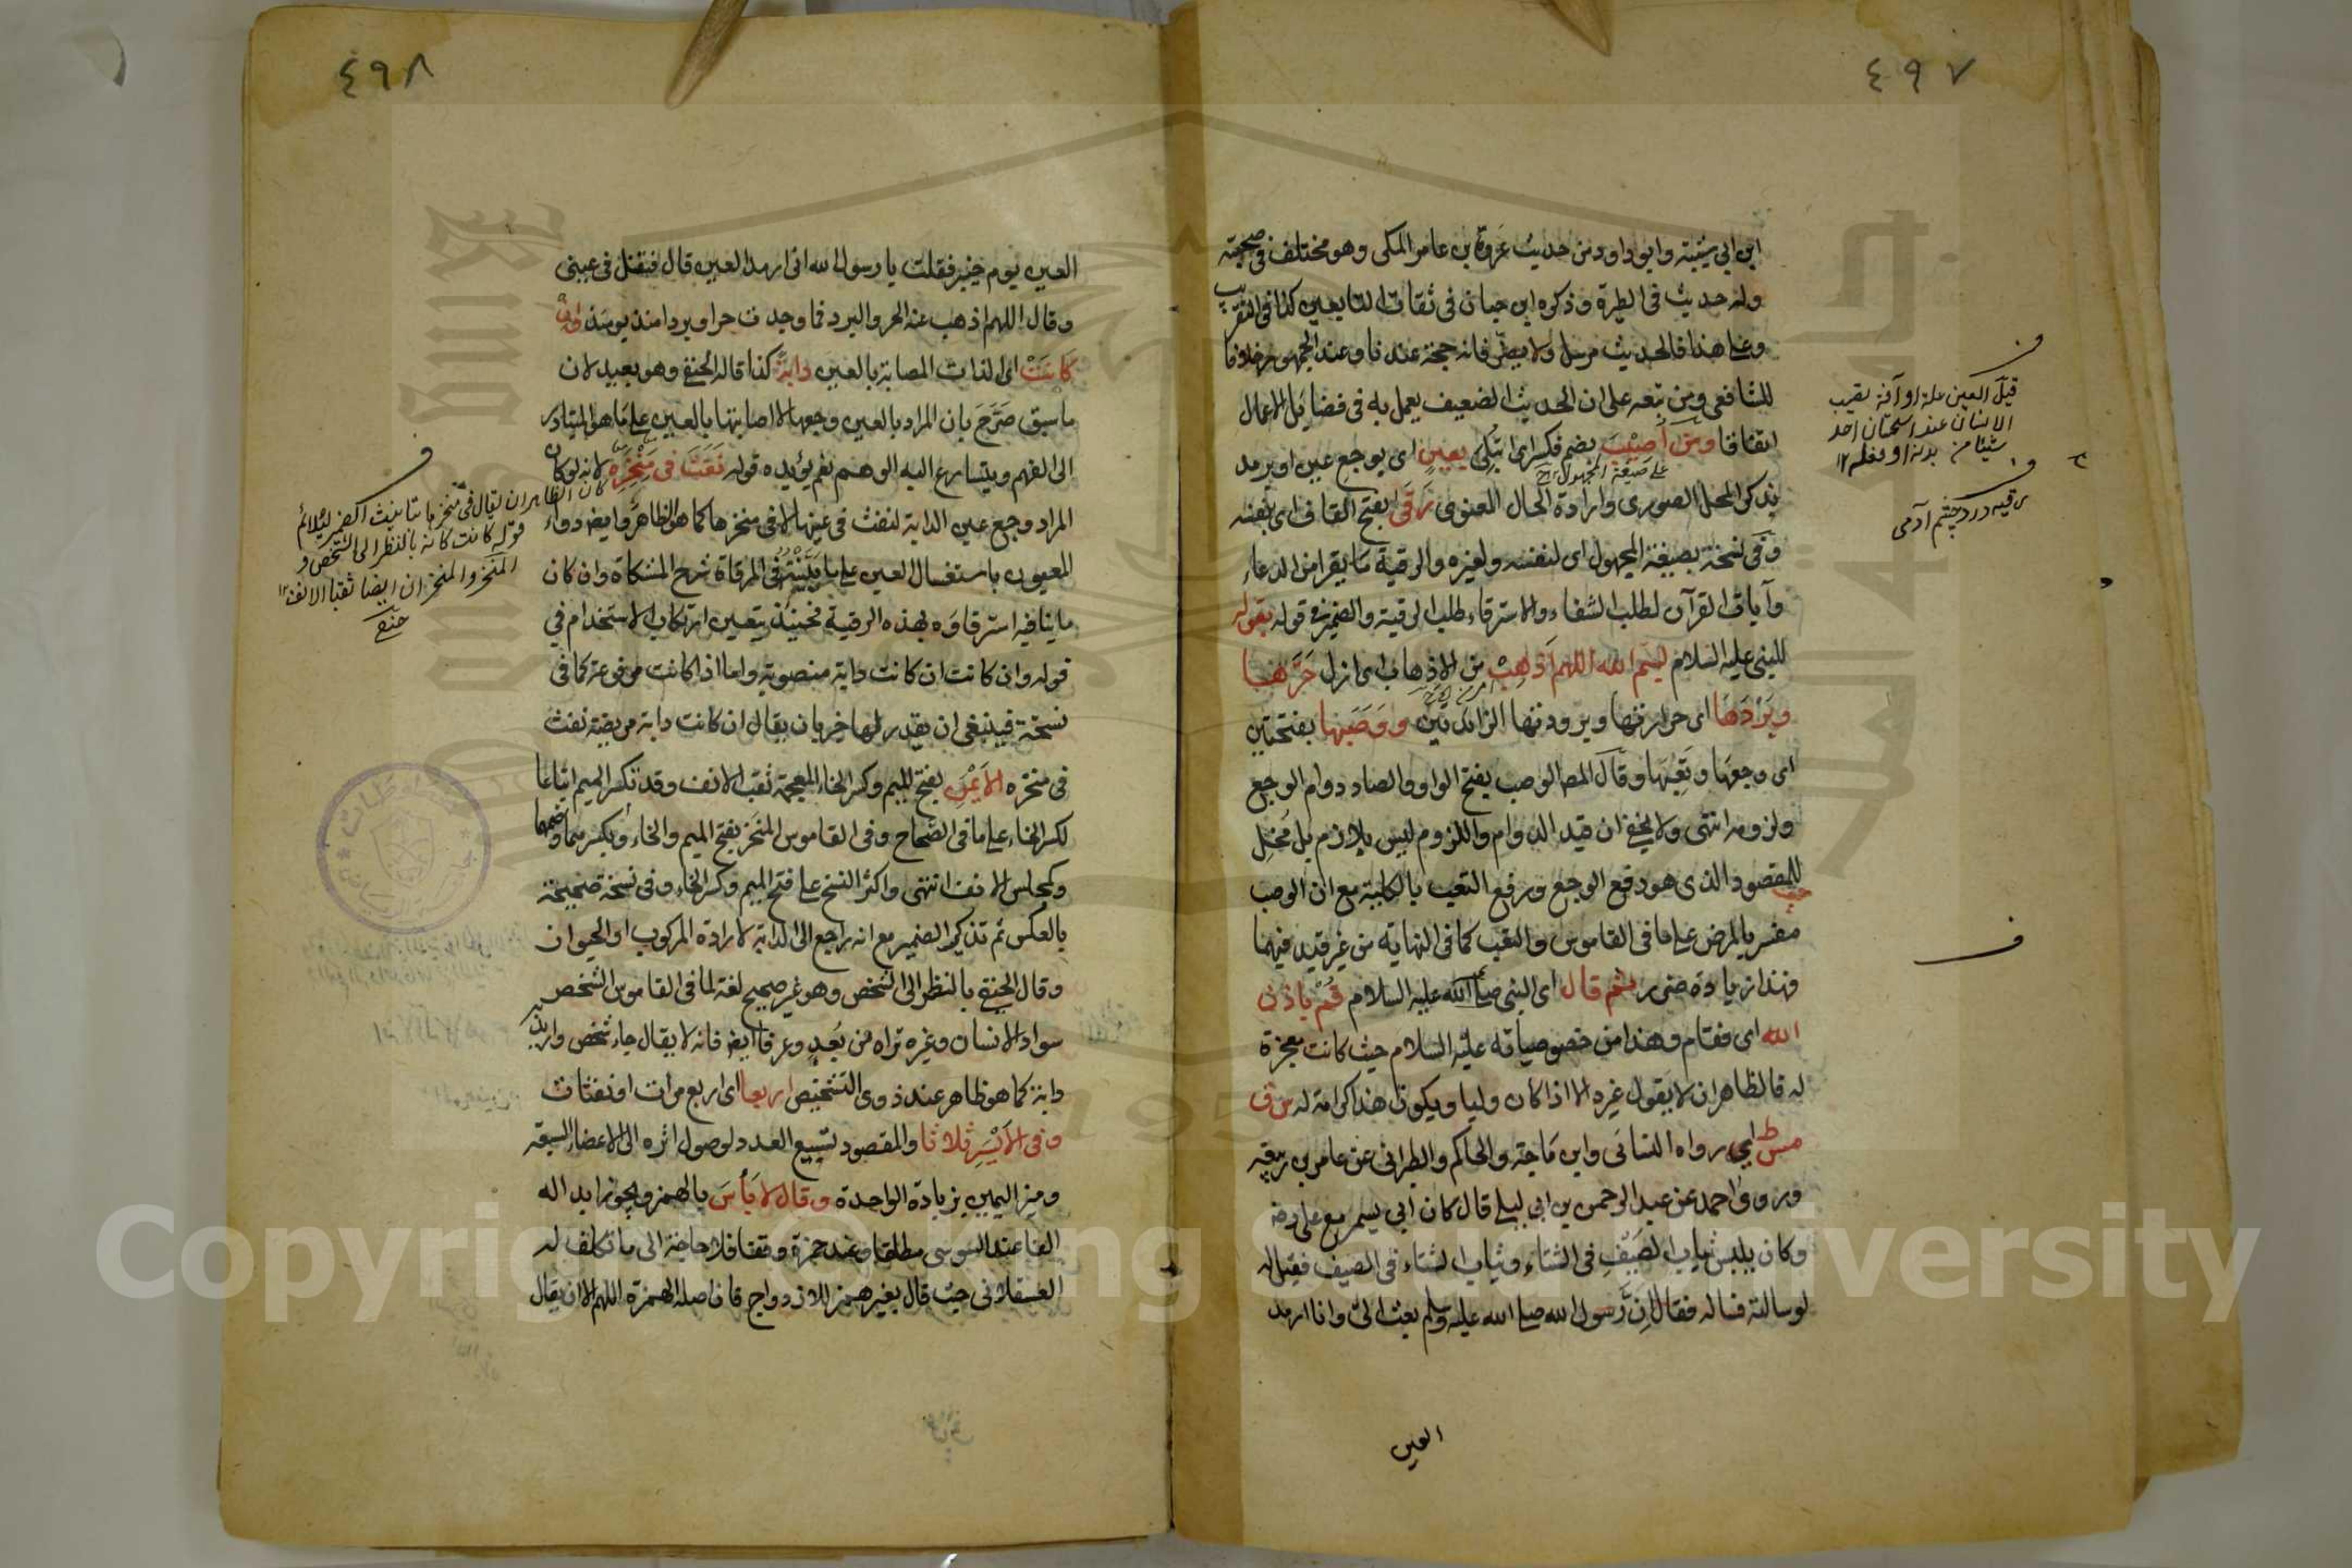 ٤٩٧
ابن ابي شيبة وابو داود من حديث عروة بن عامر المكى وهو مختلف فى صحبته
وله حديث فى الطيرة وذكره ابن حبان فى ثقات التابعين كذا فى التقريب
وعلى هذا فالحديث مرسل ولا يضر فانه حجة عندنا وعند الجمهور خلافا
للشافعى ومن تبعه على ان الحديث الضعيف يعمل به فى فضايل الاعمال
اتفاقا ومن اُصِيْبَ بضم فكسر اى ابتُلِى بعينٍ اى بوجع عين او برمد
على صيغة المجهول
بذكر المحل الصورى وارادة الحال المعنوى رَقَى بفتح القاف اى بنفسه
وفى نسخة بصيغة المجهول اى لنفسه ولغيره والرقية ما يقرا من الدعاء
وآيات القرآن لطلب الشفاء والاسترقاء طلب الرقية والضمير فى قوله بقوله
للنبى عليه السلام بسم الله اللهم اَذْهِبْ من الاذهاب اى ازل حَرَّهَا
وبَرْدَهَا اى حرارتها وبرودتها الزائدتين ووَصَبَها بفتحتين
اى وجعها وتعبها وقال المص الوصب بفتح الواو والصاد دوام الوجع
ولزومه انتهى ولا يخفى ان قيد الدوام واللزوم ليس بلازم بل مُخِل
للمقصود الذى هو دفع الوجع ورفع التعب بالكلية مع ان الوصب
مفسر بالمرض على ما فى القاموس والتعب كما فى النهاية من غير قيد فيهما
فهذا زيادة ضرر ثم قال اى النبى صلى الله عليه السلام قُمْ باذن
الله اى فقام وهذا من خصوصياته عليه السلام حيث كانت معجزة
له فالظاهر ان لا يقول غيره الا اذا كان وليا ويكون هذا كرامة له س ق
مس ط اى رواه النسائى وابن ماجة والحاكم والطبرانى عن عامر بن ربيعة
وروى احمد عن عبد الرحمن بن ابى ليلى قال كان ابى يسمر مع على رضه
وكان يلبس ثياب الصَيْفِ فى الشتاءِ وثياب الشتاء فى الصيف فقيل له
لو سالته فساله فقال اِنَّ رسول الله صلى الله عليه وسلم بعث الىّ وانا ارمد
العين
ف
قيل العين علة او آفة تصيب
الانسان عند استحسان احد
شيئا من بدنه او فعله ١٢
ف
رقيه درد چشم آدمى
ف
٤٩٨
العين يوم خيبر فقلت يا رسول الله انى ارمد العين قال فتفل فى عينى
وقال اللهم اذهب عنه الحر والبرد فما وجدت حرا وبردا منذ يومئذ وان
كَانَتْ اى الذات المصابة بالعين دابةً كذا قاله الحنفى وهو بعيد لان
ما سبق صَرَّحَ بان المراد بالعين وجعها لا اصابتها بالعين على ما هو المتبادر
الى الفهم ويتسارع اليه الوهم نعم يؤيده قوله نَفَثَ فى مَنْخِرِه لانه لو كان
المراد وجع عين الدابة لنفث فى عينها لا فى منخرها كما هو الظاهر وايضه دواء
المعيون باستغسال العين على ما بَيَّنْتُهُ فى المرقاة شرح المشكاة وان كان
ما ينافيه استرقاؤه بهذه الرقية فحينئذ يتعين ارتكاب الاستخدام فى
قوله وان كانت ان كانت دابة منصوبة واما اذا كانت مرفوعة كما فى
نسخة فينبغى ان يقدر لها خبر بان يقال ان كانت دابة مريضة نفث
فى منخره الاَيْمَنِ بفتح الميم وكسر الخاء المعجمة ثقب الانف وقد تكسر الميم اتباعا
لكسر الخاء على ما فى الصحاح وفى القاموس المنخر بفتح الميم والخاء وبكسرهما وضمهما
وكمجلس الانف انتهى واكثر النسخ على فتح الميم وكسر الخاء وفى نسخة صحيحة
بالعكس ثم تذكير الضمير مع انه راجع الى الدابة لارادة المركوب او الحيوان
وقال الحنفى بالنظر الى الشخص وهو غير صحيح لغة لما فى القاموس الشخص
سواد الانسان وغيره تراه من بُعدٍ وعرفا ايضه فانه لا يقال جاء شخص واريد به
دابة كما هو ظاهر عند ذوى التشخيص اربعا اى اربع مرات او نفثات
وفى الاَيْسَرِ ثلاثا والمقصود تسبيع العدد لوصول اثره الى الاعضاء السبعة
وميز اليمين بزيادة الواحدة وقال لا بَأْسَ بالهمز ويجوز ابداله
الفا عند السوسى مطلقا وعند حمزة وقفا فلا حاجة الى ما تكلف له
العسقلانى حيث قال بغير همز للازدواج فان اصله الهمزة اللهم الا ان يقال
ف
كان الظاهر ان يقال فى منخرها بتانيث الضمير ليلائم
قوله كانت كانه بالنظر الى الشخص و
المنخر والمنخران ايضا ثقبا الانف ١٢
حنفى
Copyright © King Saud University
1957